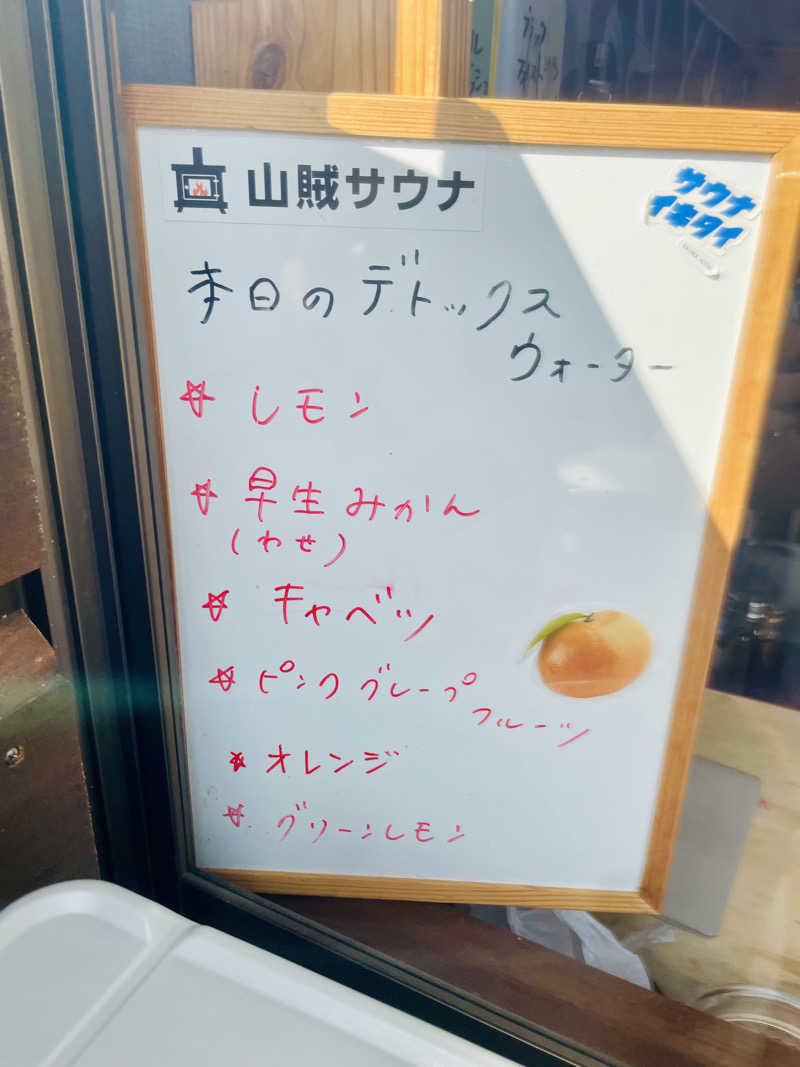 山賊サウナ
サウナ
イキタイ
本日のデトックス
ウォーター
☆ レモン
☆ 早生みかん
(わせ)
☆ キャベツ
☆ ピンクグレープ
フルーツ
☆ オレンジ
☆ グリーンレモン